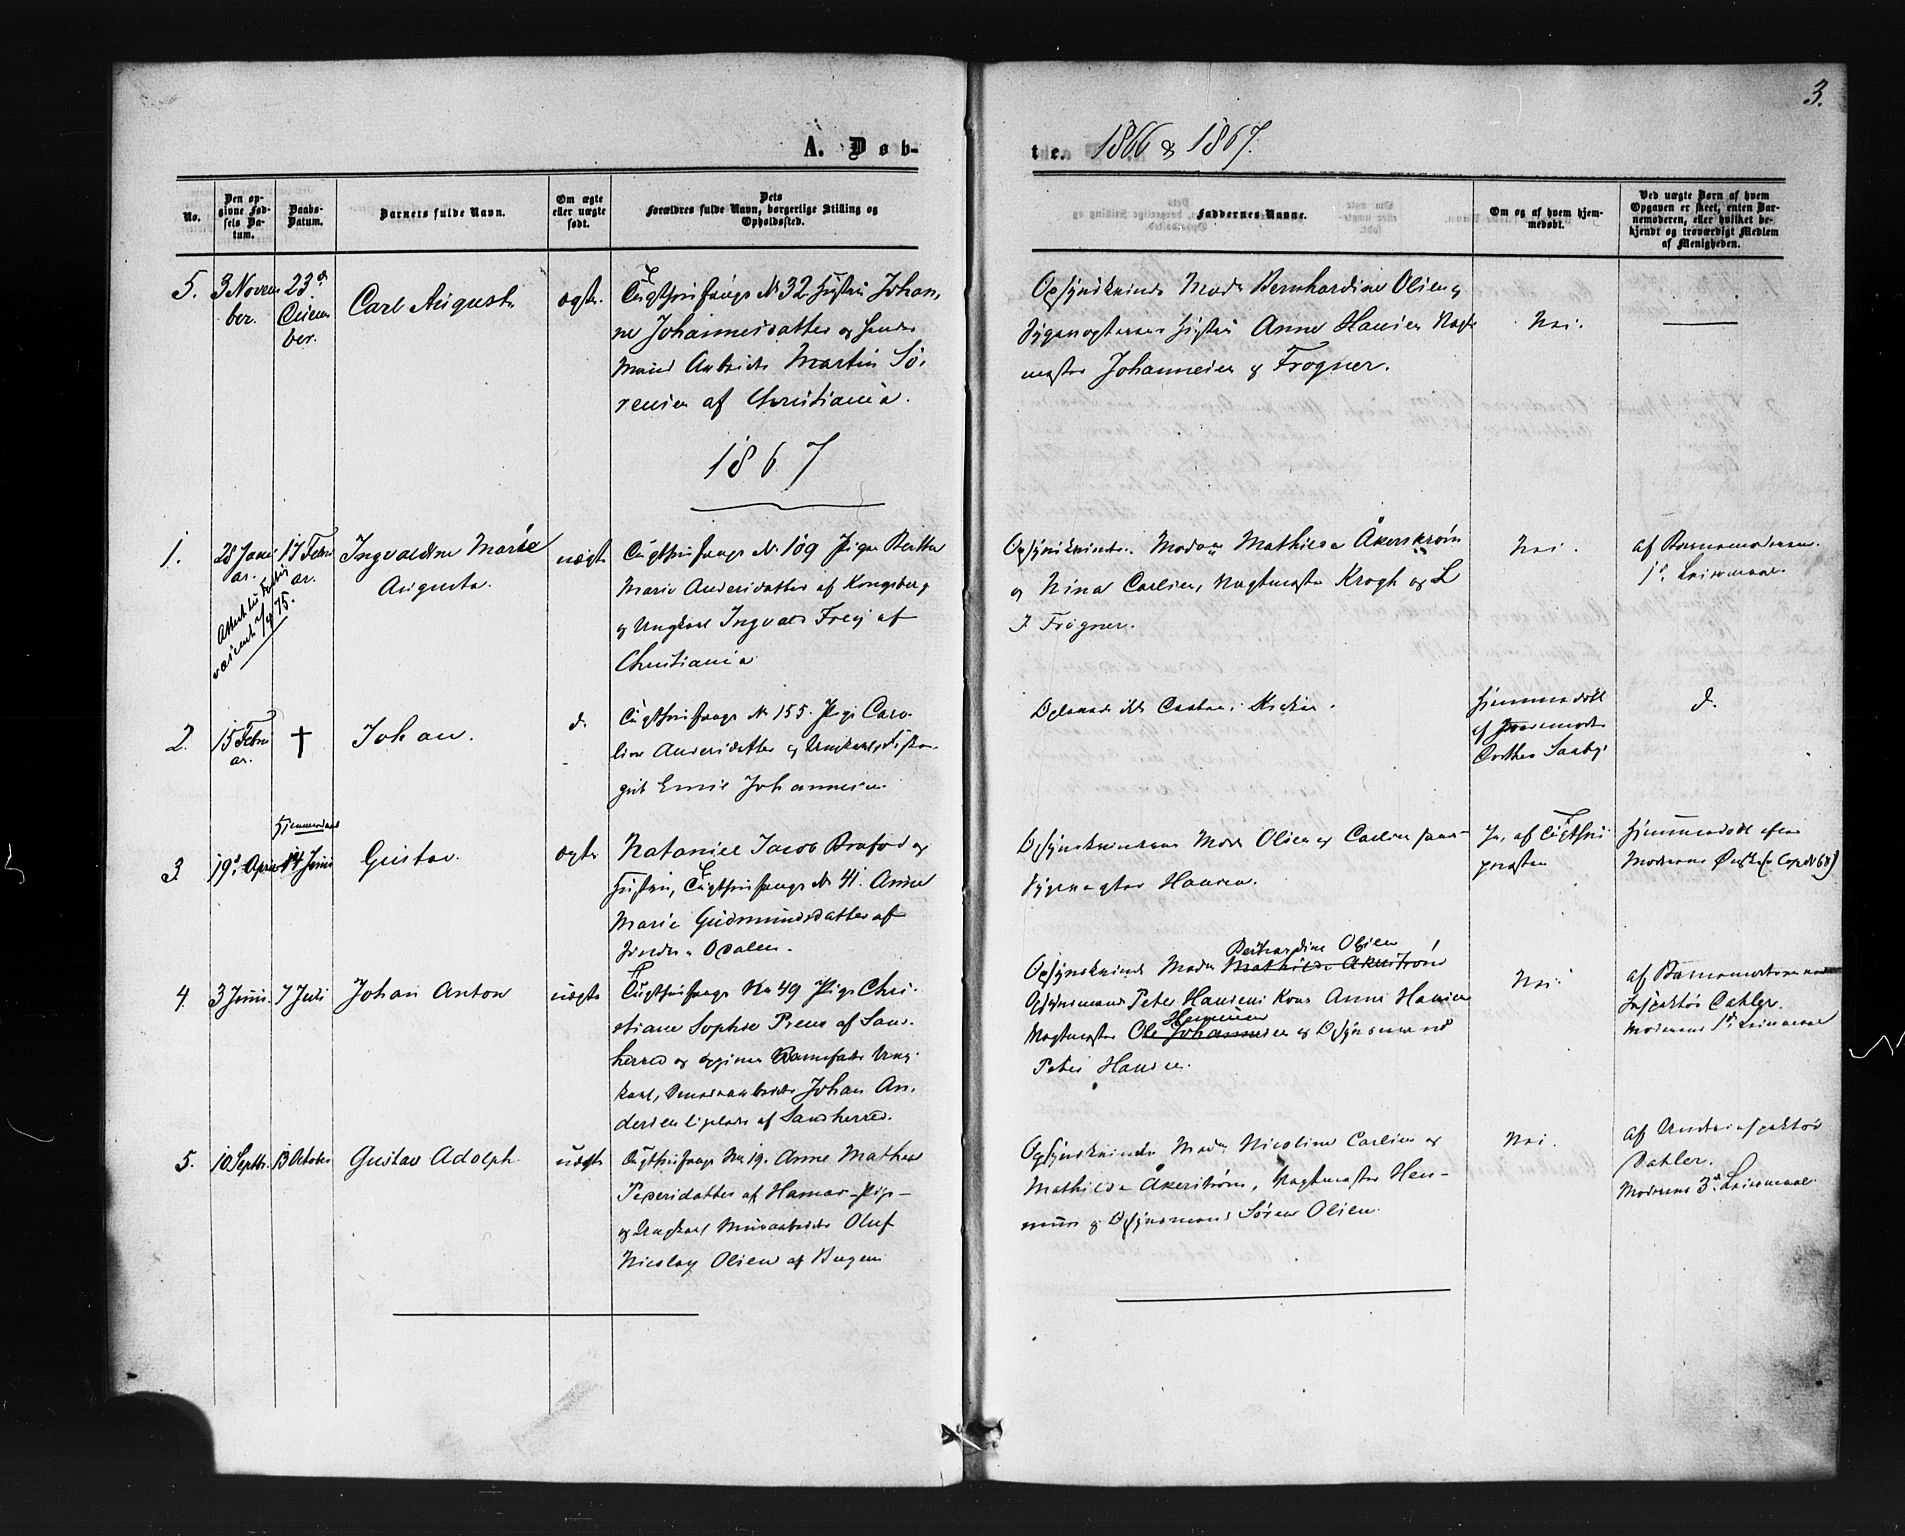 3.
A. Døb-
te. 1866 & 1867.
No.
Den op-
givne Fød-
sels Da-
tum.
Daabs-
Datum.
Barnets fulde Navn.
Om ægte
eller uægte
født.
Dets
Forældres fulde Navn, borgerlige Stilling og
Opholdssted.
Faddernes Navne.
Om og af hvem hjem-
medøbt.
Ved uægte Børn af hvem
Opgaven er skeet, enten Bar-
nemoderen, eller hvilket be-
kjendt og troværdigt Medlem
af Menigheden.
5.
3 Novem
ber.
23d
Decem
ber.
Carl August
ægte.
Tugthusfange No 32. Hustru Johan,
ne Johannesdatter og hendes
Mand Arbeider Martin Sø,
rensen af Christiania.
Opsynskvinde Mad. Bernhardine Olsen og
Hustru Anne Hansen Vagt
mester Johannesen og Frogner.
Nei.
1867
1.
28 Janu
ar.
17 Febru
ar.
75.
Ingvaldine Marie
Augusta.
uægte
Tugthusfange No 109 Pige Berthe
Marie Andersdatter af Kongsberg,
og Ungkarl Ingvald Frey af
Christiania
Opsynskvinde. Madam Mathilda Åkerstrøm
og Nina Carlsen, Vagtmester Krogh og L
J. Frogner.
Nei.
af Barnemoderen.
1ste Leiermaal.
2.
15 Febru
ar.
†
Johan.
d.
Tugthusfange No 155. Pige Caro-
line Andersdatter og Ungkarl,
gut Emil Johannesen
ikke i Kirken.
Hjemmedøbt
af Jordemoder
Saaby.
d.
3.
19de April
Hjemmedaab
14 Juni
Gustav.
ægte
Nataniel Jacob og
Hustru, Tugthusfange No 41. Anne
Marie Gudmundsdatter af
Odalen.
Opsynskvinderne Mad. Olsen og Carlsen samt
Hansen.
Ja, af Tugthus
præsten
Hjemmedøbt efter
Moderens Ønske (Cop. No 64)
4.
3 Juni.
7 Juli
Johan Anton
uægte
Tugthusfange No 49 Pige Chri-
stiane Sophie af Sand-
herred og opgiven Barnefader Ung-
karl, Johan An,
dersen af Sandherred.
Bernhardine Olsen
Opsynskvinde Madam Mathilda Åkerstrøm
Opsynsmand Peter Hansens Kone Anne Hansen
Vagtmester Ole Johannesen og Opsynsmand
Peter Hansen.
Nei
af Barnemoderen
Inspektør Dahler.
Moderens 1ste Leiermaal
5.
10 Septbr.
13 October
Gustav Adolph.
uægte
Tugthusfange No 19. Anne Mathea
Pedersdatter af Hamar – Pige –
og Ungkarl Murarbeider Oluf
Nicolay Olsen af Bergen
Opsynskvinde Mad. Nicoline Carlsen og
Mathilda Åkerstrøm, Vagtmester Hen-
og Opsynsmand Søren Olsen.
Nei.
af Underinspektør
Dahler.
Moderens 3d Leiermaal.